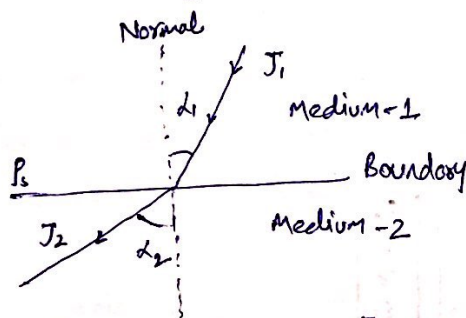 Normal
J₁
α₁
Medium-1
ρₛ
Boundary
J₂
α₂
Medium-2